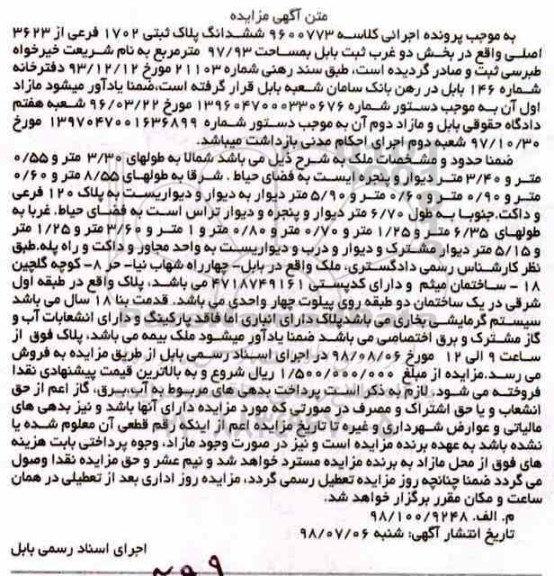 متن آگهی مزایده
به موجب پرونده اجرائی کلاسه ۹۶۰۰۷۷۳ ششدانگ پلاک ثبتی ۱۷۰۲ فرعی از ۳۶۲۳
اصلی واقع در بخش دو غرب ثبت بابل بمساحت ۹۷/۹۳ مترمربع به نام شریعت خیرخواه
طبرسی ثبت و صادر گردیده است، طبق سند رهنی شماره ۲۱۱۰۳ مورخ ۹۳/۱۲/۱۲ دفترخانه
شماره ۱۴۶ بابل در رهن بانک سامان شعبه بابل قرار گرفته است.ضمنا یادآور میشود مازاد
اول آن به موجب دستور شماره ۱۳۹۶۰۴۷۰۰۰۳۳۰۶۷۶ مورخ ۹۶/۰۳/۲۲ شعبه هفتم
دادگاه حقوقی بابل و مازاد دوم آن به موجب دستور شماره ۱۳۹۷۰۴۷۰۰۱۶۳۶۸۹۹ مورخ
۹۷/۱۰/۳۰ شعبه دوم اجرای احکام مدنی بازداشت میباشد.
ضمنا حدود و مشخصات ملک به شرح ذیل می باشد شمالا به طولهای ۳/۳۰ متر و ۰/۵۵
متر و ۳/۴۰ متر دیوار و پنجره ایست به فضای حیاط . شرقا به طولهای ۸/۵۵ متر و ۰/۶۰
متر و ۰/۹۰ متر و ۰/۶۰ متر و ۵/۹۰ متر دیوار به دیوار و دیواریست به پلاک ۱۲۰ فرعی
و داکت.جنوبا به طول ۶/۷۰ متر دیوار و پنجره و دیوار تراس است به فضای حیاط. غربا به
طولهای ۶/۳۵ متر و ۱/۲۵ متر و ۰/۷۰ متر و ۰/۸۰ متر و ۱ متر و ۳/۶۰ متر و ۱/۲۵ متر
و ۵/۱۵ متر دیوار مشترک و دیوار و درب و دیواریست به واحد مجاور و داکت و راه پله.طبق
نظر کارشناس رسمی دادگستری، ملک واقع در بابل- چهارراه شهاب نیا- حر ۸- کوچه گلچین
۱۸ - ساختمان میثم و دارای کدپستی ۴۷۱۸۷۴۹۱۶۱ می باشد، پلاک واقع در طبقه اول
شرقی در یک ساختمان دو طبقه روی پیلوت چهار واحدی می باشد. قدمت بنا ۱۸ سال می باشد
سیستم گرمایشی بخاری می باشدپلاک دارای انباری اما فاقد پارکینگ و دارای انشعابات آب و
گاز مشترک و برق اختصاصی می باشد ضمنا یادآور میشود ملک بیمه می باشد، پلاک فوق از
ساعت ۹ الی ۱۲ مورخ ۹۸/۰۸/۰۶ در اجرای اسناد رسمی بابل از طریق مزایده به فروش
می رسد.مزایده از مبلغ ۱/۵۰۰/۰۰۰/۰۰۰ ریال شروع و به بالاترین قیمت پیشنهادی نقدا
فروخته می شود. لازم به ذکر است پرداخت بدهی های مربوط به آب،برق، گاز اعم از حق
انشعاب و یا حق اشتراک و مصرف در صورتی که مورد مزایده دارای آنها باشد و نیز بدهی های
مالیاتی و عوارض شهرداری و غیره تا تاریخ مزایده اعم از اینکه رقم قطعی آن معلوم شده یا
نشده باشد به عهده برنده مزایده است و نیز در صورت وجود مازاد، وجوه پرداختی بابت هزینه
های فوق از محل مازاد به برنده مزایده مسترد خواهد شد و نیم عشر و حق مزایده نقدا وصول
می گردد ضمنا چنانچه روز مزایده تعطیل رسمی گردد، مزایده روز اداری بعد از تعطیلی در همان
ساعت و مکان مقرر برگزار خواهد شد.
م. الف. ۹۸/۱۰۰/۹۲۴۸
تاریخ انتشار آگهی: شنبه ۹۸/۰۷/۰۶
اجرای اسناد رسمی بابل